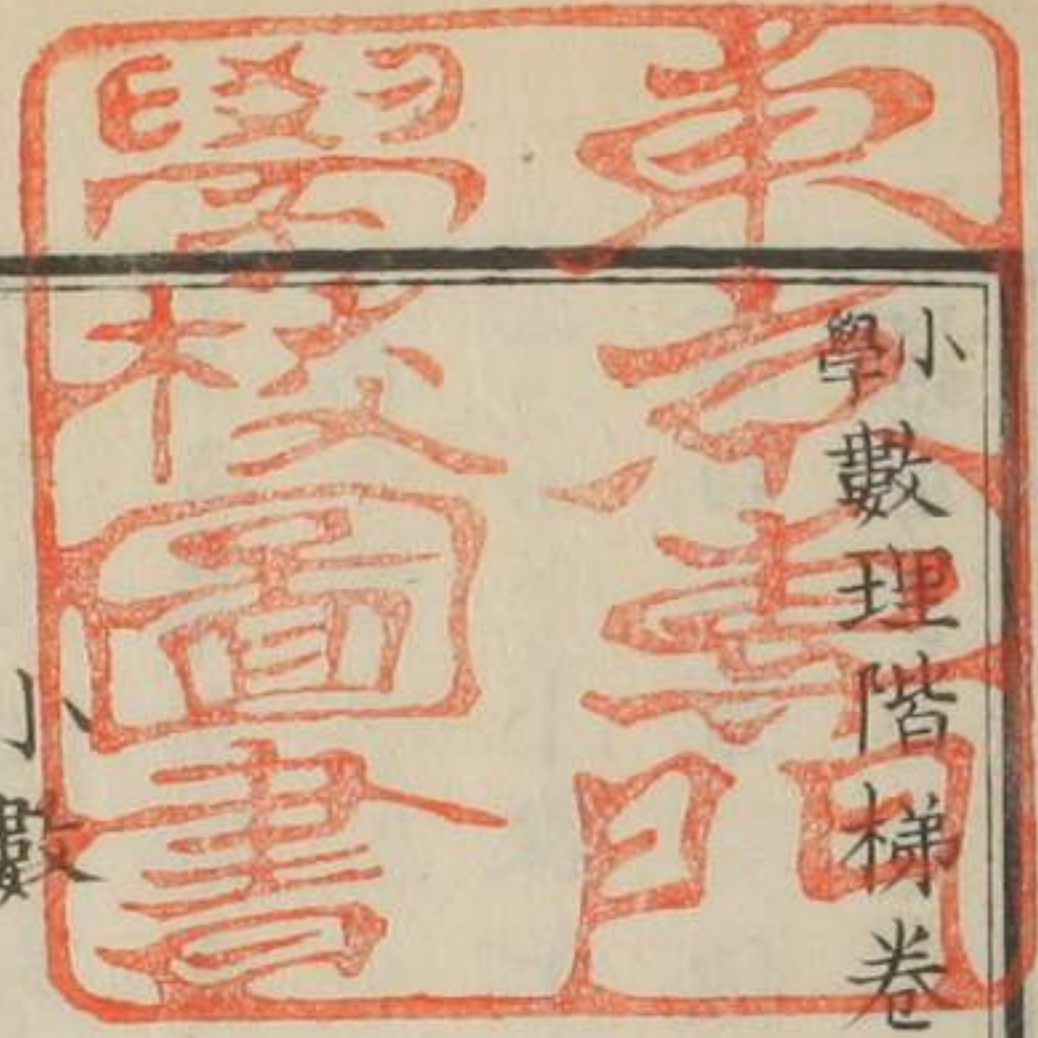 小學數理階梯卷
小數
東京專門
學校圖書